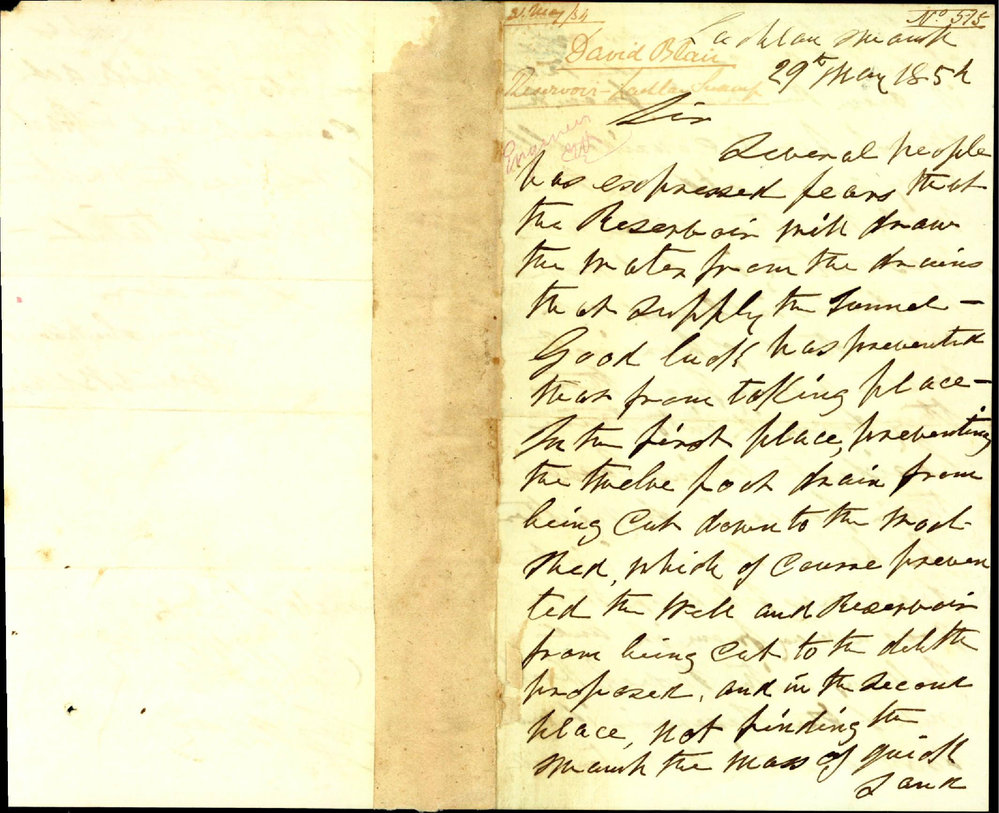 31 May/54
No 515
David Blair
Reservoir - Lachlan Swamp
Engineer
Lachlan Swamp
29th May 1854
Sir
Several people
has expressed fears that
the Reservoir will draw
the Water from the drains
that supply the Tunnel -
Good luck has prevented
that from taking place -
In the first place, preventing
the twelve foot drain from
being Cut down to the Wool
shed, which of Course preven
ted the Well and Reservoir
from being Cut to the debth
proposed, and in the Second
place, not finding the
Swamp the Mass of quick
Sand